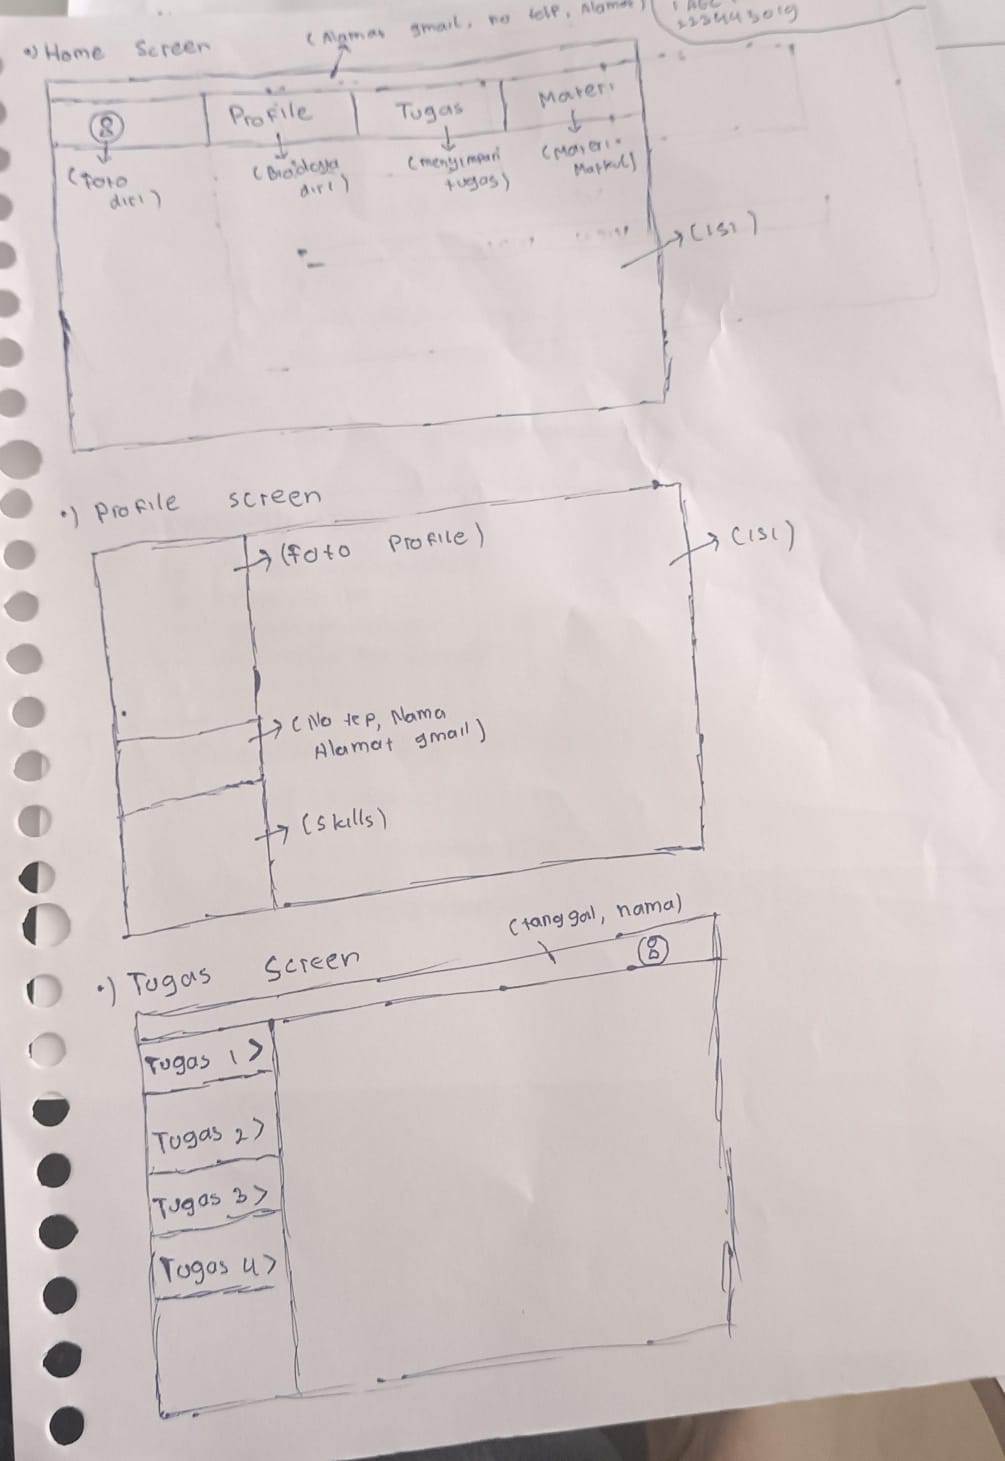 Home Screen
(Alamat gmail, no telp, Alamat)
Profile
Tugas
Materi
(foto
diri)
(Biodata
diri)
(menyimpan
tugas)
(Materi
Matkul)
(isi)
•) Profile screen
(foto Profile)
(isi)
(No tep, Nama
Alamat gmail)
(skills)
(tanggal, nama)
•) Tugas Screen
Tugas 1 >
Tugas 2 >
Tugas 3 >
Tugas 4 >